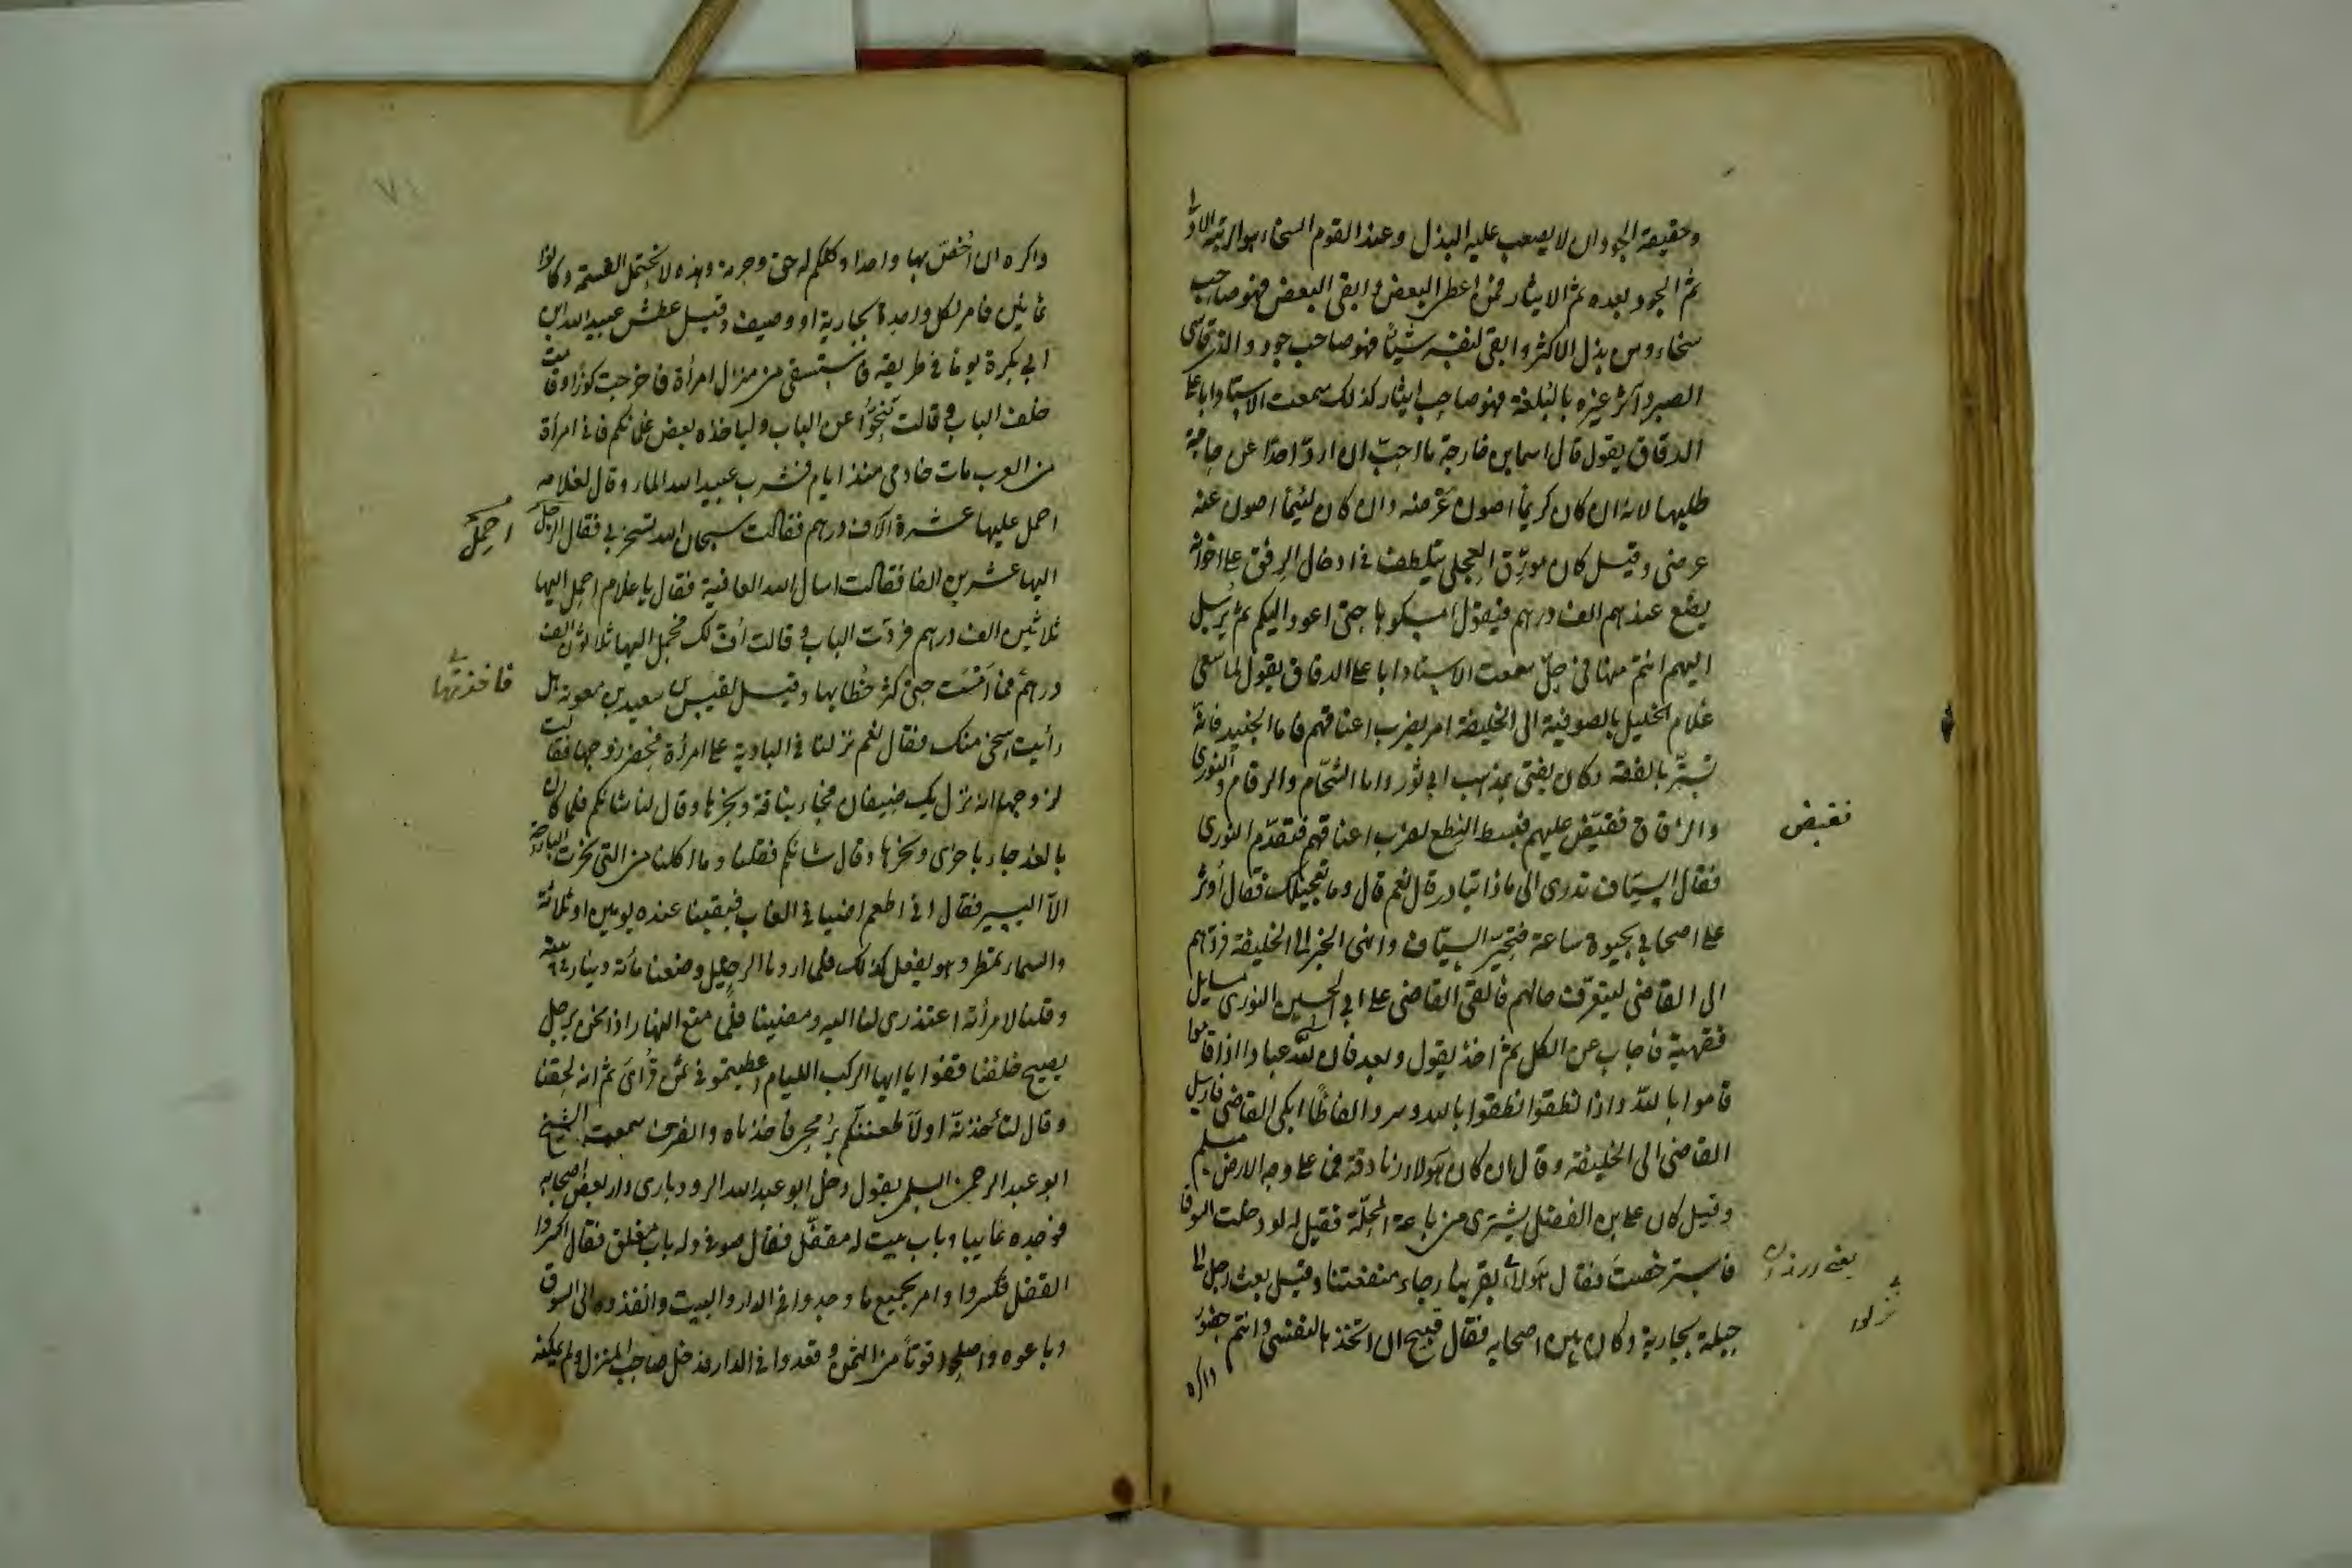 وحقيقة الجود ان لا يصعب عليه البذل وعند القوم السخاء هو الرتبة الاولى
ثم الجود بعده ثم الايثار فمن اعطى البعض وابقى البعض فهو صاحب
سخاء ومن بذل الاكثر وابقى لنفسه شيئا فهو صاحب جود والذى قاسى
الضر وآثر غيره بالبلغة فهو صاحب ايثار كذلك سمعت الاستاد ابا على
الدقاق يقول قال اسما بن خارجة ما احب ان ارد احدا عن حاجة
طلبها لانه ان كان كريما اصون عرضه وان كان لئيما اصون عنه
عرضى وقيل كان مورق العجلى يتلطف فى ادخال الرفق على اخوانه
يضع عندهم الف درهم فيقول امسكوها حتى اعود اليكم ثم يرسل
اليهم انتم منها فى حل سمعت الاستاد ابا على الدقاق يقول لما سعى
غلام الخليل بالصوفية الى الخليفة امر بضرب اعناقهم فاما الجنيد فانه
تستر بالفقه وكان يفتى بمذهب ابى ثور واما الشحام والرقام والنورى
والزقاق فقبض عليهم فبسط النطع لضرب اعناقهم فتقدم النورى
فقال السياف تدرى الى ماذا تبادر قال نعم قال وما تعجيلك فقال اوثر
على اصحابى بحيوة ساعة فتحير السياف وانهى الخبر الى الخليفة فردهم
الى القاضى ليتعرف حالهم فالقى القاضى على ابى الحسين النورى مسايل
فقهية فاجاب عن الكل ثم اخذ يقول وبعد فان لله عبادا اذا قاموا
قاموا بالله واذا نطقوا نطقوا بالله وسرد الفاظا ابكى القاضى فارسل
القاضى الى الخليفة وقال ان كان هولاء زنادقة فما على وجه الارض مسلم
وقيل كان على بن الفضل يشترى من باعة المحلة فقيل له لو دخلت السوق
فاسترخصت فقال هولاء بقربنا رجاء منفعتنا وقيل بعث رجل الى
جبلة بجارية وكان بين اصحابه فقال قبيح ان اتخذها لنفسى وانتم حضور
واكره
فقبض
نزلوا
واكره ان اخص بها واحدا وكلكم له حق وحرمة وهذه لا تحتمل القسمة وكانوا
ثمانين فامر لكل واحد بجارية او وصيف وقيل عطش عبيد الله بن
ابى بكرة يوما فى طريقه فاستسقى من منزل امرأة فاخرجت كوزا وقامت
خلف الباب وقالت تنحوا عن الباب ولياخذه بعض غلمانكم فانى امرأة
من العرب مات خادمى منذ ايام فشرب عبيد الله الماء وقال لغلامه
احمل عليها عشرة الاف درهم فقالت سبحان الله تسخر بى فقال احمل
اليها عشرين الفا فقالت اسال الله العافية فقال يا غلام احمل اليها
ثلاثين الف درهم فردت الباب وقالت اف لك فحمل اليها ثلاثون الف
درهم فما امست حتى كثر خطابها وقيل لقيس بن سعيد بن معوية هل
رأيت اسخى منك فقال نعم نزلنا فى البادية على امرأة فحضر زوجها فقالت
لزوجها انه نزل بك ضيفان فجاء بناقة ونحرها وقال لنا شانكم فلما كان
بالغد جاء باخرى ونحرها وقال شانكم فقلنا وما اكلنا من التى نحرت البارحة
الا اليسير فقال انى لا اطعم اضيافى الغاب فبقينا عنده يومين او ثلاثة
والسماء تمطر وهو يفعل كذلك فلما اردنا الرحيل وضعنا مأة دينار فى بيته
وقلنا لامرأته اعتذرى لنا اليه ومضينا فلما متع النهار اذا نحن برجل
يصيح خلفنا قفوا يا ايها الركب اللئام اعطيتمونى ثمن قراى ثم انه لحقنا
وقال لتأخذنه او لاطعننكم برمحى فاخذناه وانصرف سمعت الشيخ
ابو عبد الرحمن السلمى يقول دخل ابو عبد الله الرودبارى دار بعض اصحابه
فوجده غايبا وباب بيت له مقفل فقال صوفى وله باب مغلق فقال اكسروا
القفل فكسروا وامر بجميع ما وجدوا فى الدار والبيت وانفذوه الى السوق
وباعوه واصلحوا وقتا من الثمن وقعدوا فى الدار فدخل صاحب المنزل ولم يمكنه
احمل
فاخذتها